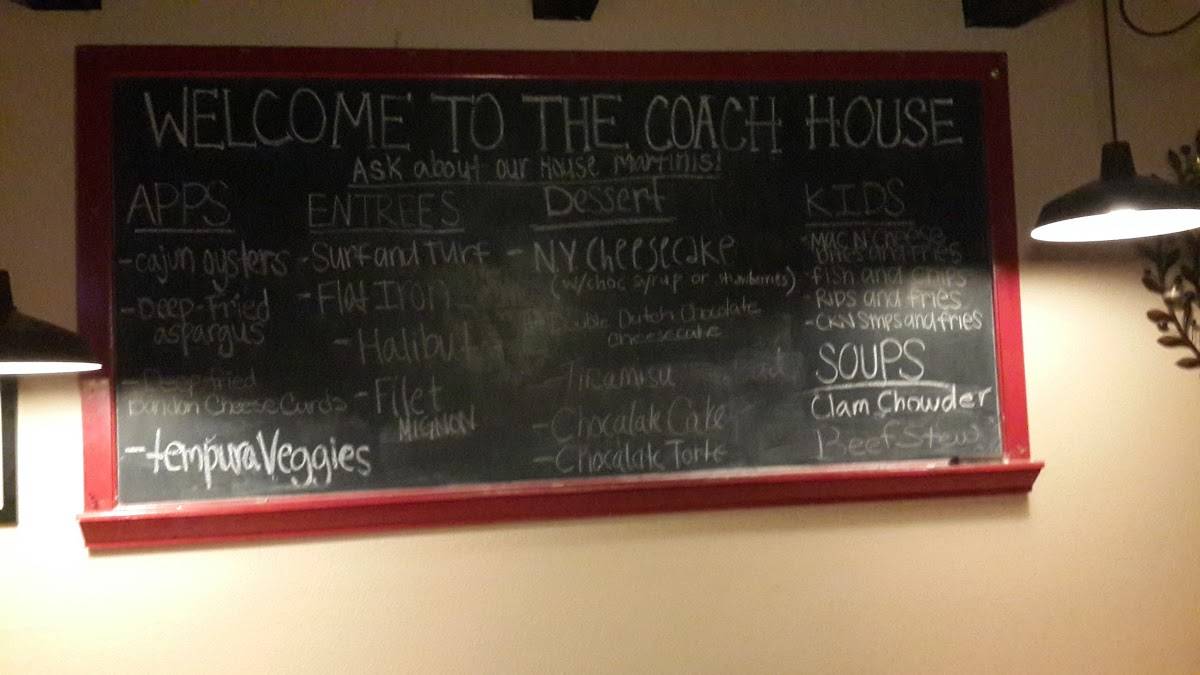 WELCOME TO THE COACH HOUSE
Ask about our House Martinis!
APPS
-cajun oysters
-Deep-Fried
aspargus
-Deep-fried
Bandon Cheese Curds
-tempura Veggies
ENTREES
-Surf and Turf
-Flat Iron
-Halibut
-Filet
MIGNON
Dessert
-N.Y. Cheesecake
(w/choc syrup or strawberries)
Double Dutch Chocolate
Cheesecake
Tiramisu
-Chocalate Cake
-Chocalate Torte
KIDS
-Mac N. Cheese
and fries
-fish and chips
-Ribs and fries
-CKN Strips and fries
SOUPS
Clam Chowder
Beef Stew